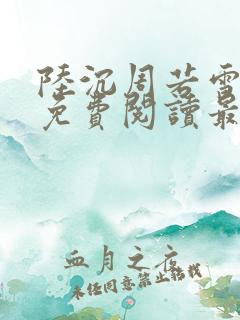 陸沉周若雪
免費閱讀最
血月之夜
未經同意禁止轉載